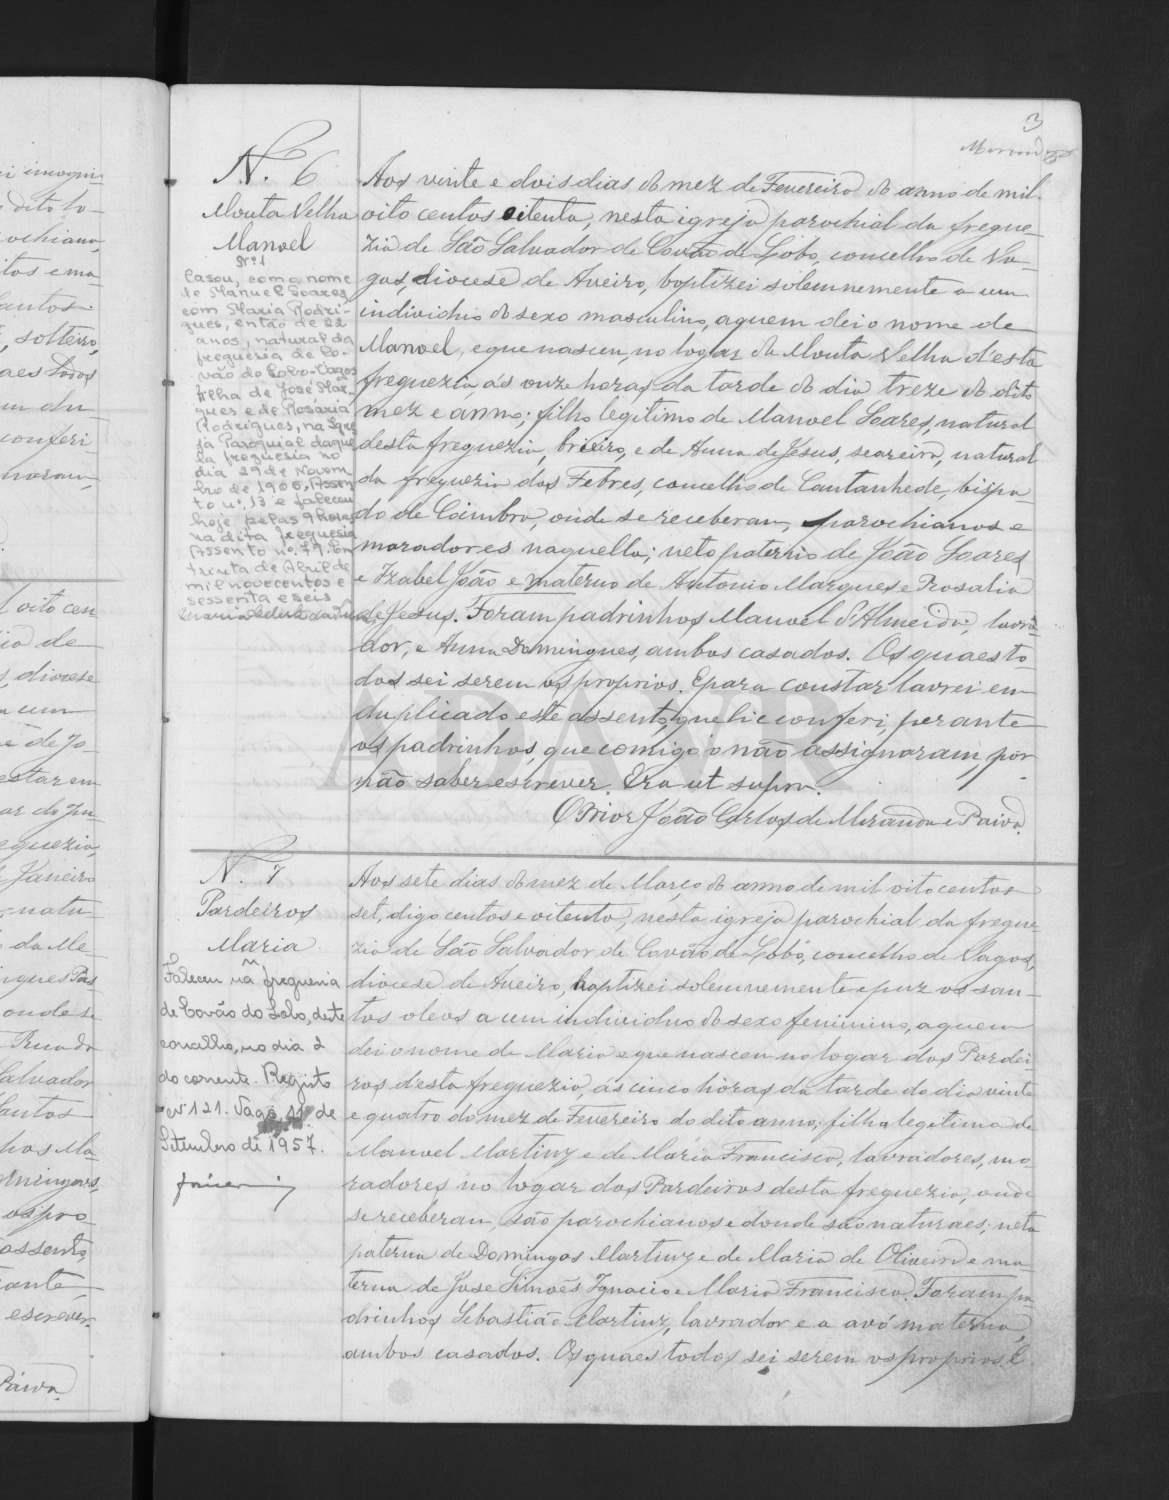 3
Miranda
N. 6
Mouta Velha
Manoel
Nº 1
Casou, com o nome
de Manuel Soares
com Maria Rodri-
gues, então de 22
anos, natural da
freguesia de Co-
vão do Lobo-Vagos
filha de José Mar
ques e de Rosária
Rodrigues, na Igre
ja Paroquial daque
la freguesia no
dia 29 de Novem
bro de 1906, Assen
to nº 13 e faleceu
hoje pelas 9 horas
na dita freguesia
Assento nº 79. Em
trinta de Abril de
mil novecentos e
sessenta e seis
Aos vinte e dois dias do mez de Fevereiro do anno de mil
oito centos oitenta, nesta igreja parochial da fregue-
zia de São Salvador de Covão do Lobo, concelho de Va-
gos, diocese de Aveiro, baptizei solemnemente a um
individuo do sexo masculino, aquem dei o nome de
Manoel, e que nasceu, no logar da Mouta Velha d'esta
freguezia, ás onze horas da tarde do dia treze do dito
mez e anno; filho legitimo de Manoel Soares, natural
desta freguezia, e de Anna de Jesus, seareira, natural
da freguezia dos Febres, concelho de Cantanhede, bispa
do de Coimbra, onde se receberam, parochianos e
moradores naquella; neto paterno de João Soares
e Izabel João e materno de Antonio Marques e Rosalia
de Jesus. Foram padrinhos Manoel d'Almeida, lavra-
dor, e Anna Domingues, ambos casados. Os quaes to
dos sei serem os proprios. E para constar lavrei em
duplicado este assento, que li e conferi, perante
os padrinhos, que comigo o não assignaram, por
não saber escrever. Era ut supra.
O Prior João Carlos de Miranda e Paiva
N. 7
Pardeiros
Maria
Faleceu na freguesia
de Covão do Lobo, deste
concelho, no dia 2
do corrente. Registo
nº 121. Vagos, 11 de
Setembro de 1957.
Aos sete dias do mez de Março do anno de mil oito centos
set, digo centos e oitenta, nesta igreja parochial da fregue-
zia de São Salvador de Covão do Lobo, concelho de Vagos,
diocese de Aveiro, baptizei solemnemente e puz os san-
tos oleos a um individuo do sexo feminino, aquem
dei o nome de Maria e que nasceu no logar dos Pardei-
ros desta freguezia, ás cinco horas da tarde do dia vinte
e quatro do mez de Fevereiro do dito anno; filha legitima de
Manoel Martinz e de Maria Francisca, lavradores, mo-
radores no logar dos Pardeiros desta freguezia, onde
se receberam, são parochianos e donde são naturaes; neta
paterna de Domingos Martinz e de Maria de Oliveira e ma-
terna de José Simões Ignacio e Maria Francisca. Foram pa-
drinhos Sebastião Martinz, lavrador e a avó materna,
ambos casados. Os quaes todos sei serem os proprios. E